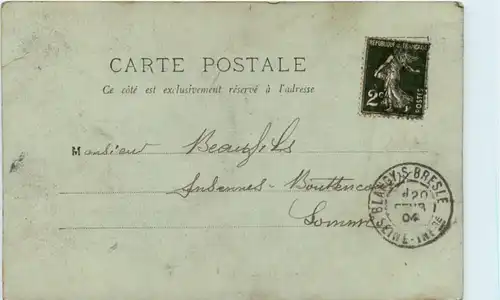 RÉPUBLIQUE FRANÇAISE
2c
POSTES
CARTE POSTALE
Ce côté est exclusivement réservé à l'adresse
Monsieur Beaufils
Somme
BLANGY-S-BRESLE
20
04
SEINE-INFRE